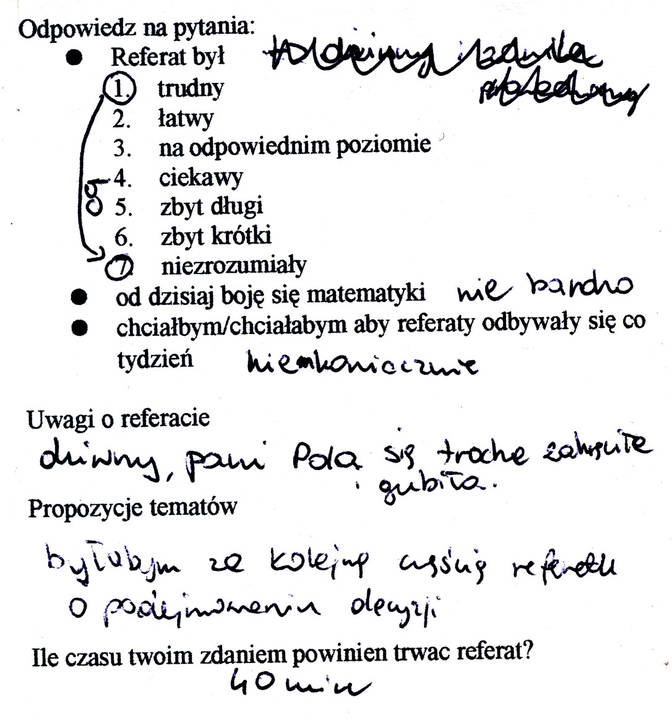 Odpowiedz na pytania:
Referat był
1. trudny
2. łatwy
3. na odpowiednim poziomie
go 4. ciekawy
5. zbyt długi
6. zbyt krótki
7 niezrozumiały
od dzisiaj boję się matematyki nie bardzo
chciałbym/chciałabym aby referaty odbywały się co
tydzień niekoniecznie
Uwagi o referacie
dziwny, pani Pola się trochę zakręciła
i gubiła.
Propozycje tematów
byłabym za kolejną częścią referatu
o podejmowaniu decyzji
Ile czasu twoim zdaniem powinien trwac referat?
40 min